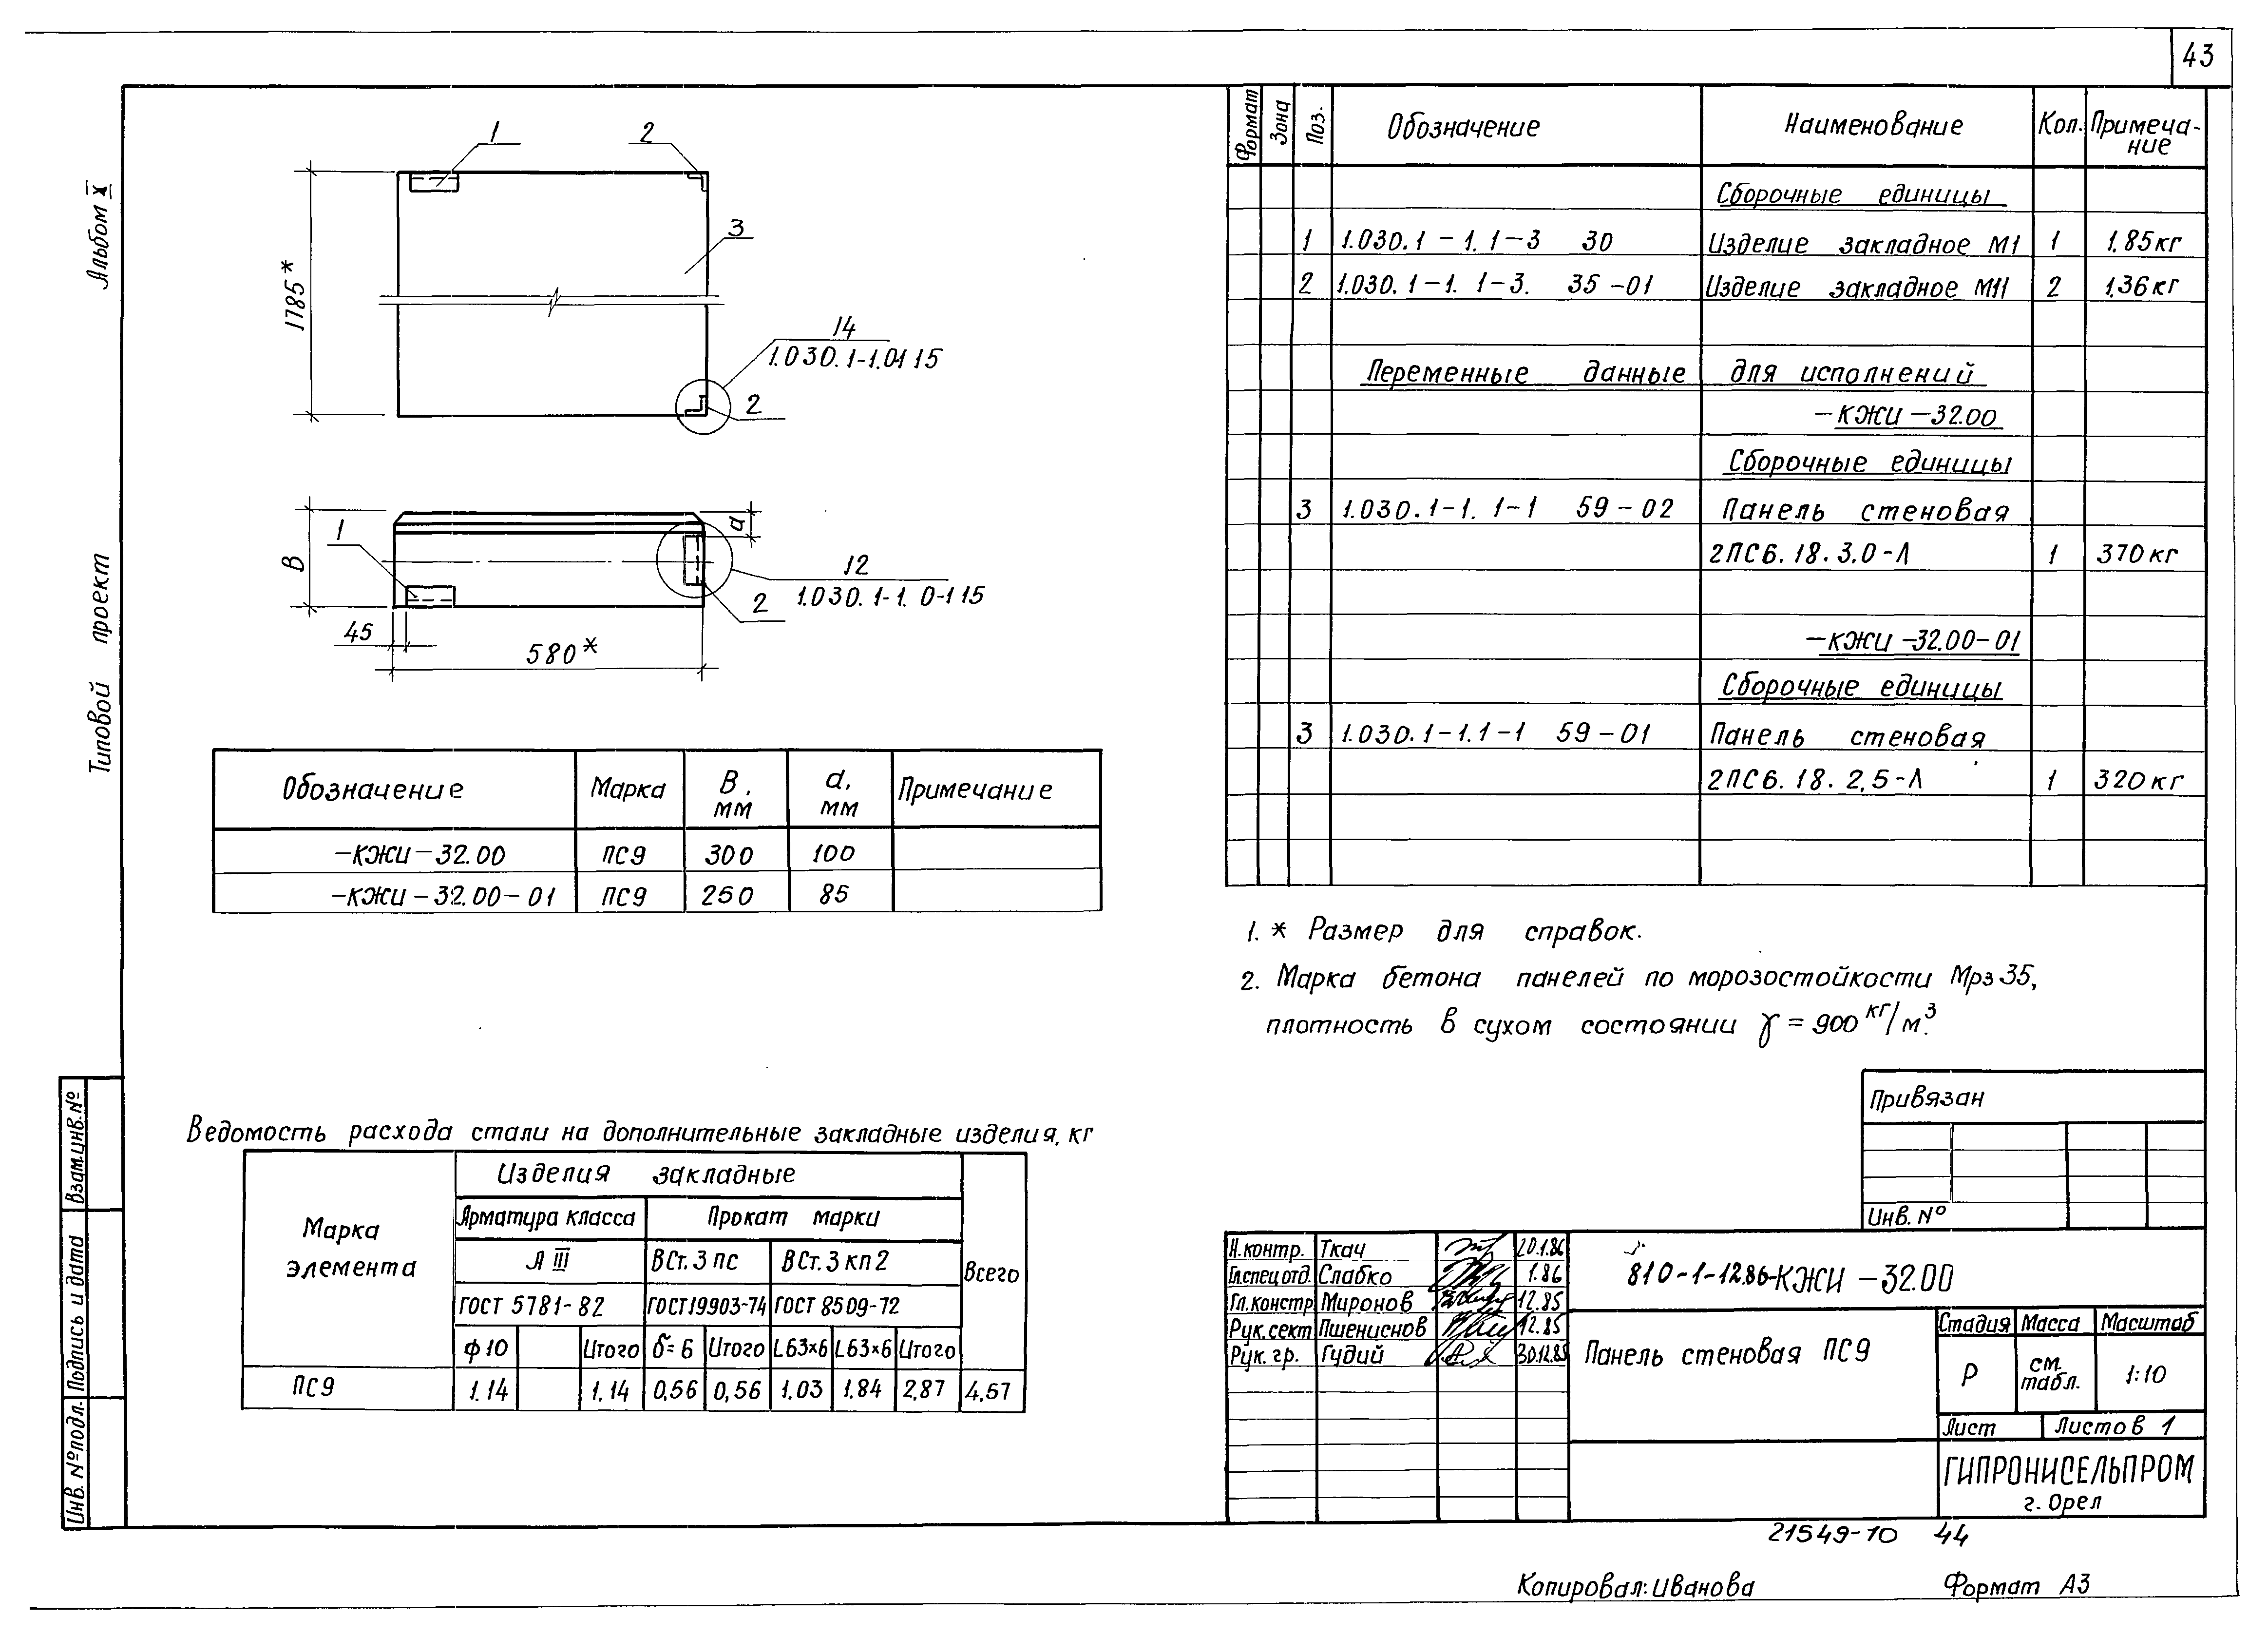 43
Альбом X
Типовой проект
1
2
3
1785*
14
1.030.1-1.0-1 15
2
1
В
а
12
1.030.1-1. 0-1 15
2
45
580*
Обозначение Марка В, мм а, мм Примечание
-КЖИ-32.00 ПС9 300 100
-КЖИ-32.00-01 ПС9 250 85
Ведомость расхода стали на дополнительные закладные изделия, кг
Марка элемента
Изделия закладные
Всего
Арматура класса Прокат марки
А III ВСт.3 пс ВСт.3 кп2
ГОСТ 5781-82 ГОСТ19903-74 ГОСТ 8509-72
ф10 Итого δ=6 Итого L63×6 L63×6 Итого
ПС9 1.14 1.14 0,56 0,56 1.03 1.84 2,87 4,57
Формат Зона Поз. Обозначение Наименование Кол. Примеча-
ние
Сборочные единицы
1 1.030.1-1.1-3 30 Изделие закладное М1 1 1,85кг
2 1.030.1-1. 1-3. 35-01 Изделие закладное М11 2 1,36кг
Переменные данные для исполнений
-КЖИ-32.00
Сборочные единицы
3 1.030.1-1. 1-1 59-02 Панель стеновая
2ПС6.18.3.0-Л 1 370кг
-КЖИ-32.00-01
Сборочные единицы
3 1.030.1-1.1-1 59-01 Панель стеновая
2ПС6.18.2,5-Л 1 320кг
1. * Размер для справок.
2. Марка бетона панелей по морозостойкости Мрз 35,
плотность в сухом состоянии γ = 900 кг/м³.
Привязан
Инв. №
Н.контр. Ткач 20.1.86
Гл.спец отд. Слабко 1.86
Гл.констр Миронов 12.85
Рук.сект Пшениснов 12.85
Рук. гр. Гудий 30.12.85
810-1-12.86-КЖИ-32.00
Панель стеновая ПС9
Стадия Масса Масштаб
Р см. табл. 1:10
Лист Листов 1
ГИПРОНИСЕЛЬПРОМ
г. Орел
Взам.инв.№
Подпись и дата
Инв. №подл.
21549-10 44
Копировал: Иванова Формат А3